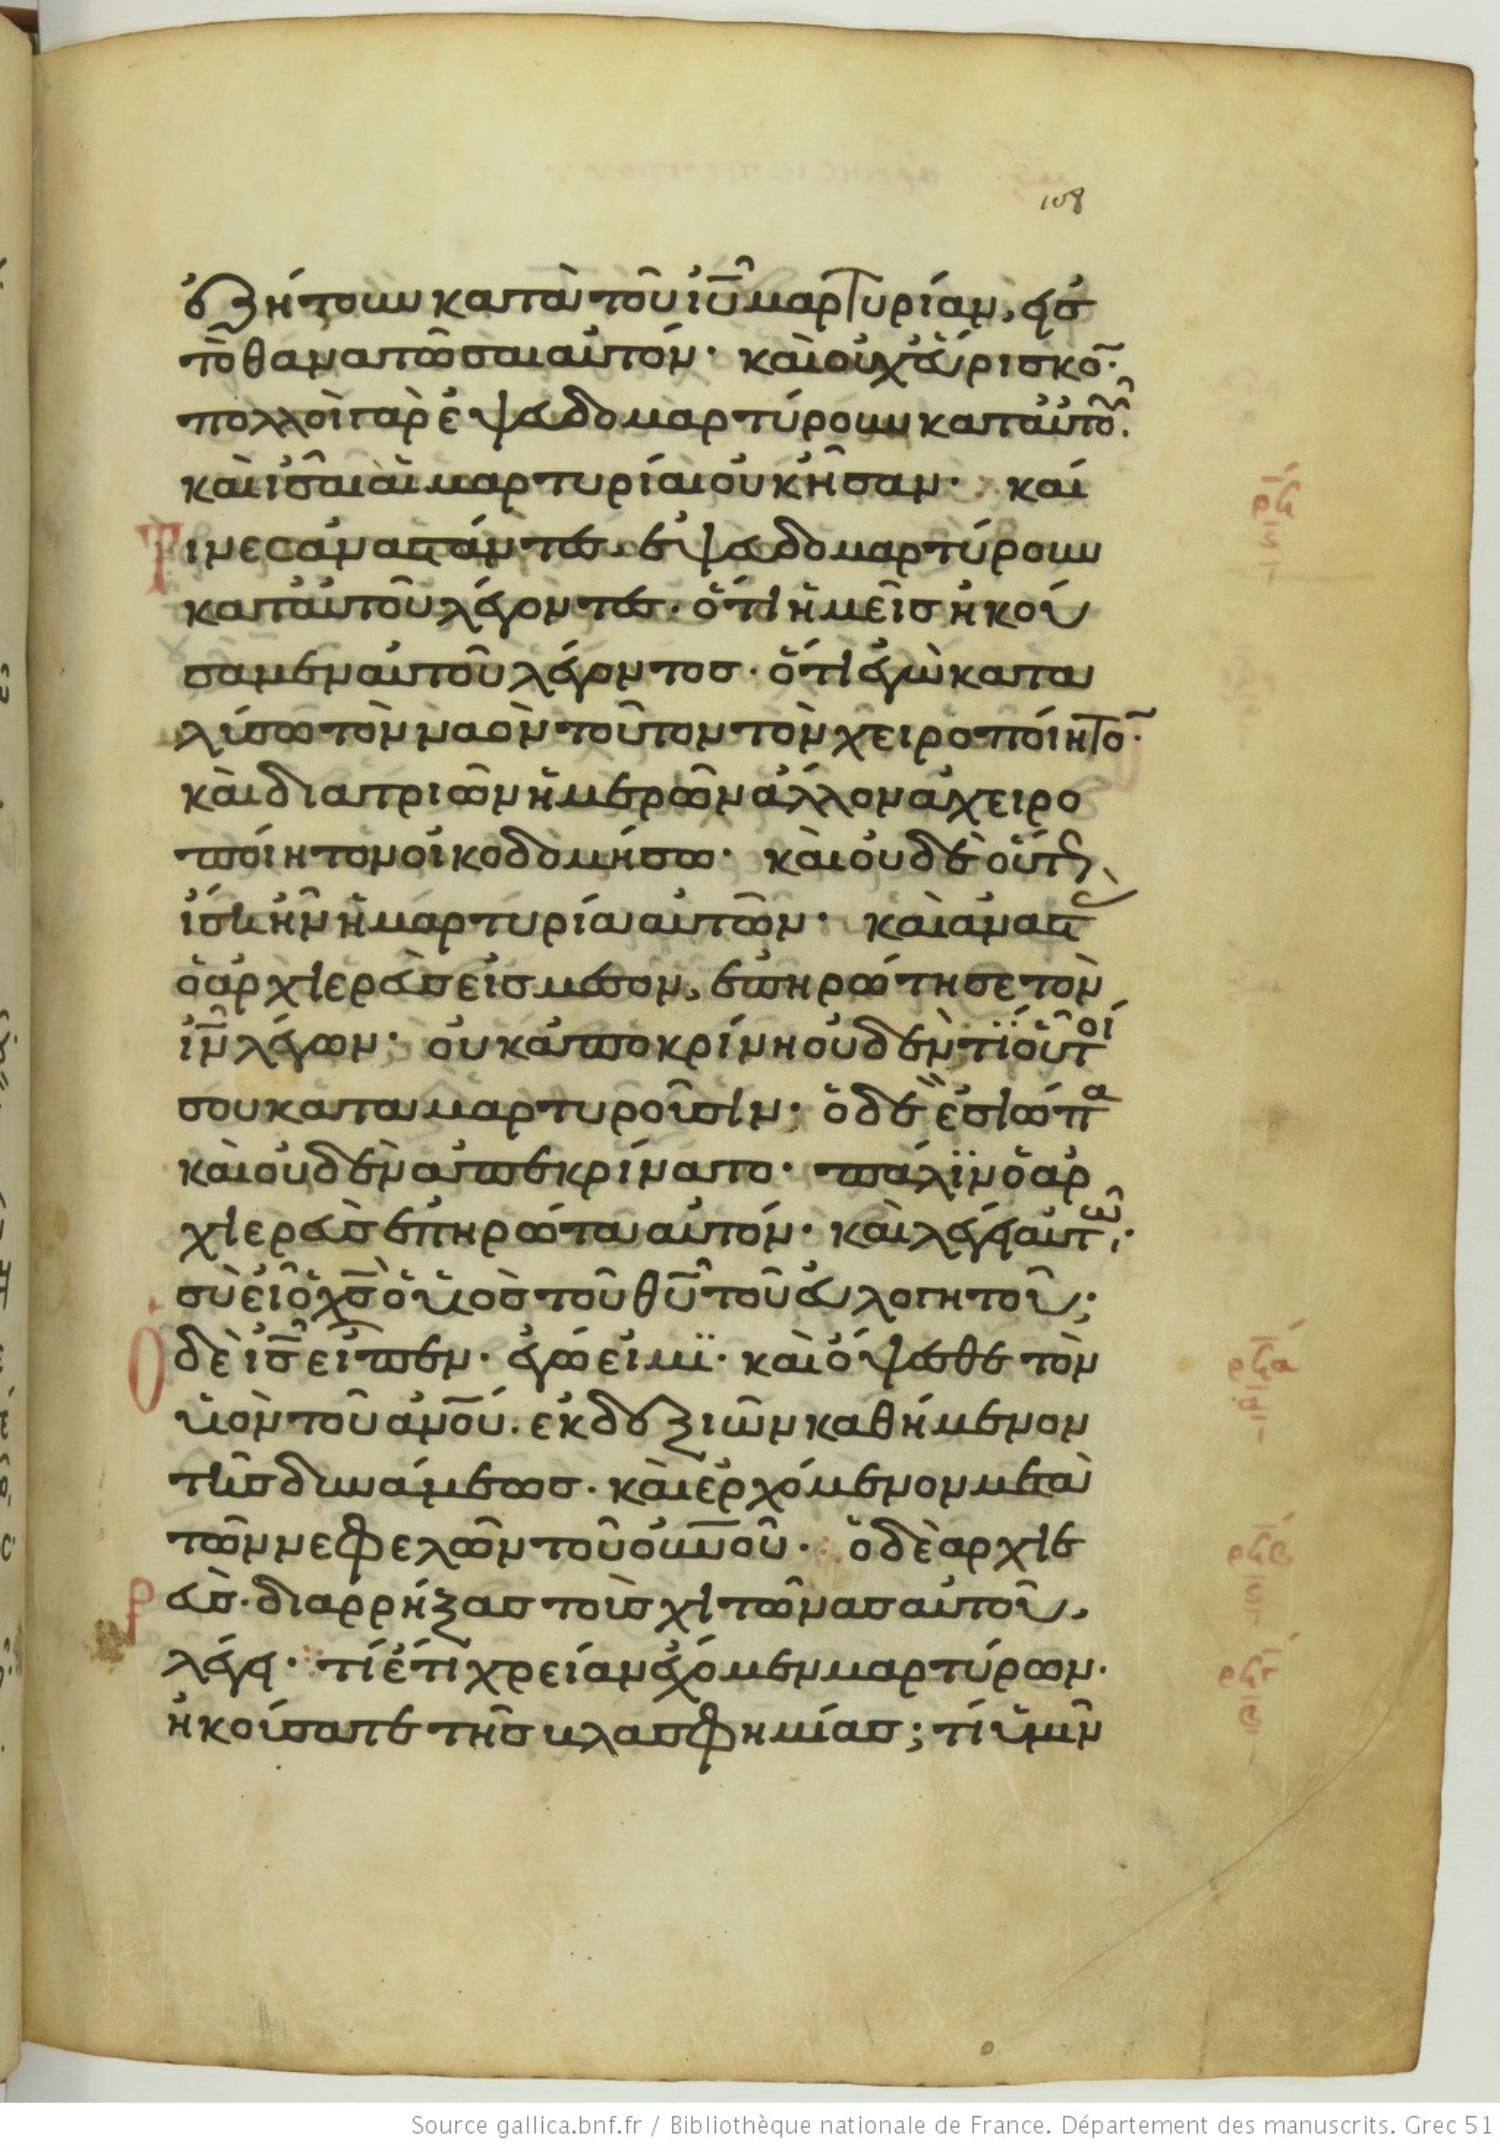 108
ἐζήτουν κατὰ τοῦ ἰῦ μαρτυρίαν, εἰς
τὸ θανατῶσαι αὐτόν· καὶ οὐχ εὕρισκο̄·
πολλοὶ γὰρ ἐψευδομαρτύρουν κατ αὐτοῦ.
καὶ ἶσαι αἱ μαρτυρίαι οὐκ ἦσαν· καί
τινες ἀναστάντες ἐψευδομαρτύρουν
κατ αὐτοῦ λέγοντες· ὅτι ἡμεῖς ἠκού
σαμεν αὐτοῦ λέγοντος· ὅτι ἐγὼ κατα
λύσω τὸν ναὸν τοῦτον τὸν χειροποίητο̄·
καὶ διατριῶν ἡμερῶν ἄλλον ἀχειρο
ποίητον οἰκοδομήσω· καὶ οὐδὲ οὕτως
ἴση ἦν ἡ μαρτυρία αὐτῶν· καὶ ἀναστ
ὁ ἀρχιερεὺς εἰς μέσον, ἐπηρώτησε τὸν
ἰν̄ λέγων· οὐκ ἀποκρίνη οὐδὲν τί οὗτοί
σου καταμαρτυροῦσιν; ὁ δὲ ἐσιώπα
καὶ οὐδὲν ἀπεκρίνατο· πάλϊν ὁ ἀρ
χιερεὺς ἐπηρώτα αὐτόν· καὶ λέγει αὐτῶ·
σὺ εἶ ὁ χς̄ ὁ υἱὸς τοῦ θῦ τοῦ εὐλογητοῦ;
Ὁ δὲ ις̄ εἶπεν· ἐγώ εἰμϊ· καὶ ὄψεσθε τὸν
υἱὸν τοῦ ἀν̄ού. ἐκ δεξιῶν καθήμενον
τῆς δυνάμεως· καὶ ἐρχόμενον μετὰ
τῶν νεφελῶν τοῦ οὐν̄οῦ· ὁ δὲ ἀρχιε
ρεὺς· διαρρήξας τοὺς χιτῶνας αὐτοῦ,
λέγει· τί ἔτι χρείαν ἔχομεν μαρτύρων·
ἠκούσατε τῆς βλασφημίας; τί ὑμῖν
Source gallica.bnf.fr / Bibliothèque nationale de France. Département des manuscrits. Grec 51